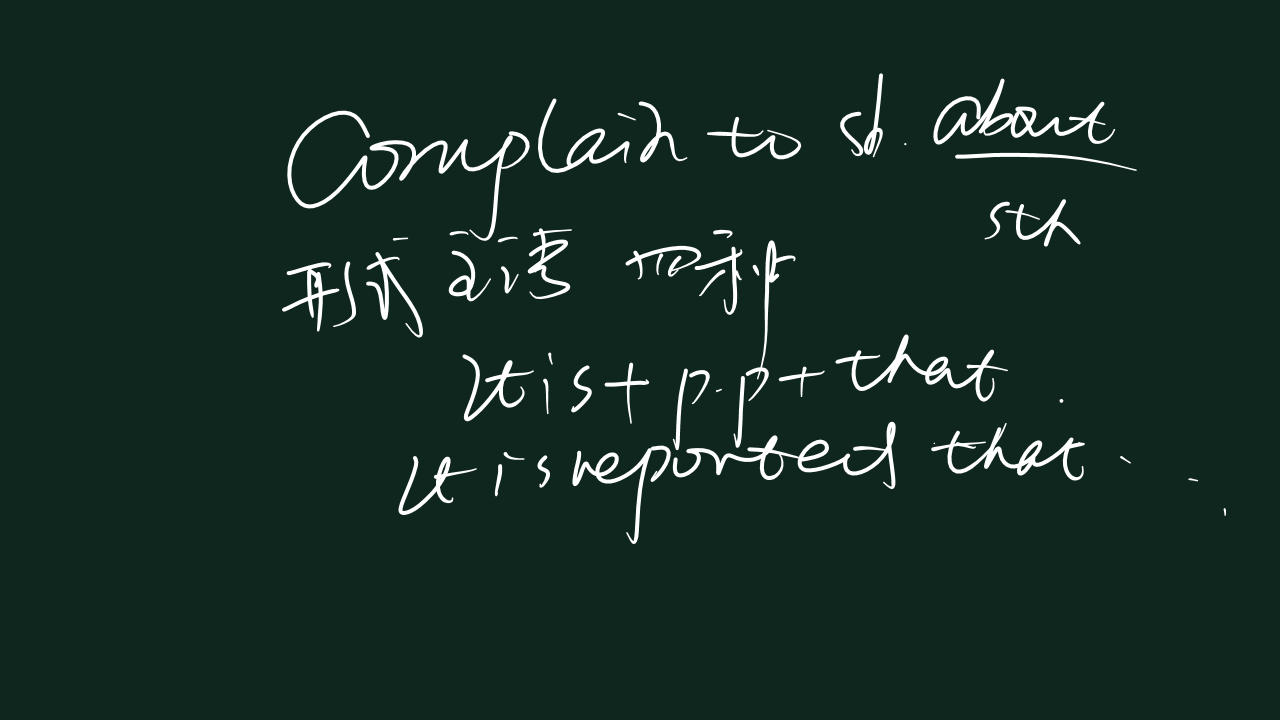 Complain to sb. about
sth
形式主语 四种
It is + p.p + that
It is reported that